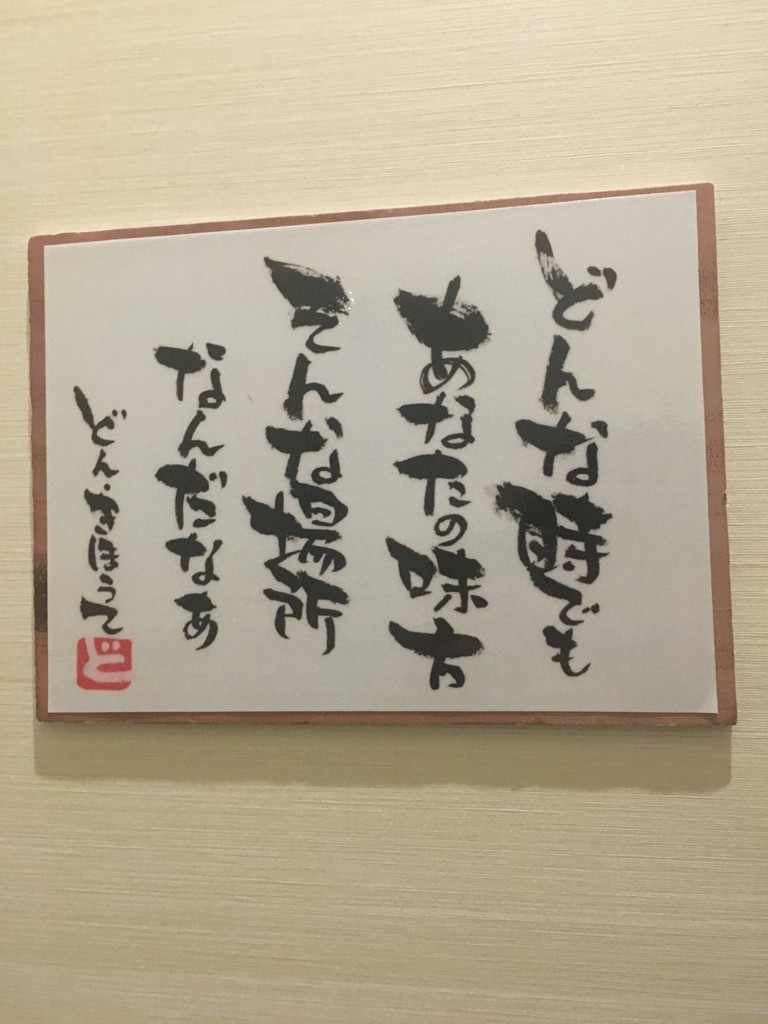 どんな時でも
あなたの味方
そんな場所
なんだなあ
どん・きほうて
ど